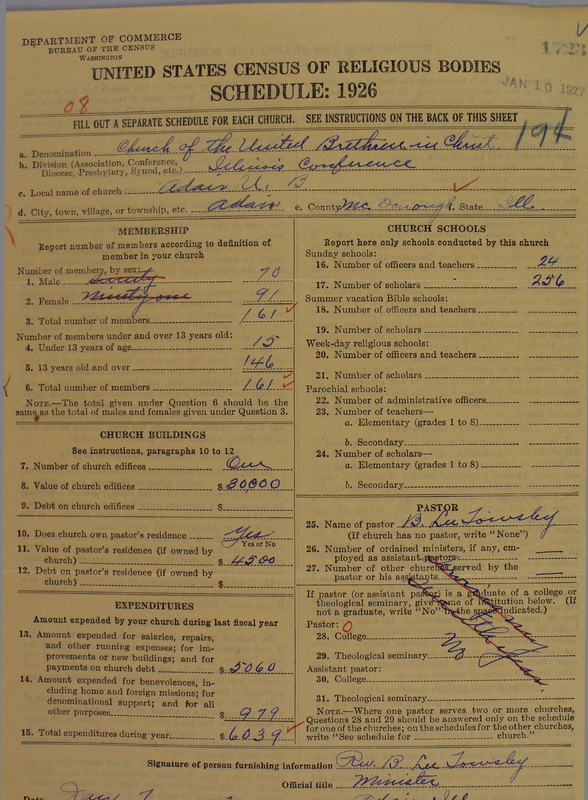 DEPARTMENT OF COMMERCE
BUREAU OF THE CENSUS
WASHINGTON
1723
JAN 10 1927
UNITED STATES CENSUS OF RELIGIOUS BODIES
SCHEDULE: 1926
08
FILL OUT A SEPARATE SCHEDULE FOR EACH CHURCH. SEE INSTRUCTIONS ON THE BACK OF THIS SHEET
194
a. Denomination Church of the United Brethren in Christ
b. Division (Association, Conference, Diocese, Presbytery, Synod, etc.) Illinois Conference
c. Local name of church Adair U. B.
d. City, town, village, or township, etc. Adair e. County Mc Donough. State Ill.
MEMBERSHIP
Report number of members according to definition of
member in your church
Number of members, by sex:
1. Male seventy 70
2. Female Ninety one 91
3. Total number of members 161
Number of members under and over 13 years old:
4. Under 13 years of age 15
5. 13 years old and over 146
6. Total number of members 161
NOTE.—The total given under Question 6 should be
same as the total of males and females given under Question 3.
CHURCH BUILDINGS
See instructions, paragraphs 10 to 12
7. Number of church edifices One
8. Value of church edifices $ 30000
9. Debt on church edifices $
10. Does church own pastor's residence Yes
Yes or No
11. Value of pastor's residence (if owned by
church) $ 4500
12. Debt on pastor's residence (if owned by
church) $
EXPENDITURES
Amount expended by your church during last fiscal year
13. Amount expended for salaries, repairs,
and other running expenses; for im-
provements or new buildings; and for
payments on church debt $ 5060
14. Amount expended for benevolences, in-
cluding home and foreign missions; for
denominational support; and for all
other purposes $ 979
15. Total expenditures during year $ 6039
CHURCH SCHOOLS
Report here only schools conducted by this church
Sunday schools:
16. Number of officers and teachers 24
17. Number of scholars 256
Summer vacation Bible schools:
18. Number of officers and teachers
19. Number of scholars
Week-day religious schools:
20. Number of officers and teachers
21. Number of scholars
Parochial schools:
22. Number of administrative officers
23. Number of teachers—
a. Elementary (grades 1 to 8)
b. Secondary
24. Number of scholars—
a. Elementary (grades 1 to 8)
b. Secondary
PASTOR
25. Name of pastor B. Lee Towsley
(If church has no pastor, write "None")
26. Number of ordained ministers, if any, em-
ployed as assistant pastors
27. Number of other churches served by the
pastor or his assistants
If pastor (or assistant pastor) is a graduate of a college or
theological seminary, give name of institution below. (If
not a graduate, write "No" in the space indicated.)
Pastor: 0
28. College
29. Theological seminary No
Assistant pastor:
30. College
31. Theological seminary
NOTE.—Where one pastor serves two or more churches,
Questions 28 and 29 should be answered only on the schedule
for one of the churches; on the schedules for the other churches,
write "See schedule for church."
Signature of person furnishing information Rev. B. Lee Towsley
Official title Minister